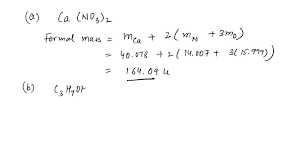 (a) Ca (NO₃)₂
Formal mass = m_Ca + 2(m_N + 3m_O)
= 40.078 + 2(14.007 + 3(15.999))
= 164.09 u
(b) C₃H₇OH